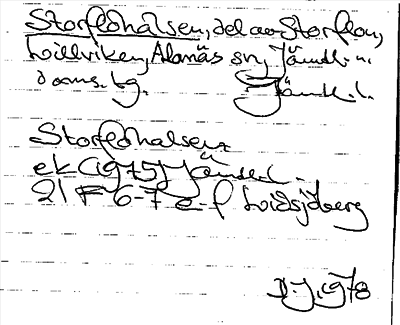 Storflohalsen, del av Storflon,
Lillviken, Alanäs sn, Jämtl. n.
doms. tg. Jämtl. l.
Storflohalsen
ek (1975) Jämtl. l.
21 F 6-7 e-f Lidsjöberg
DJ, 1978